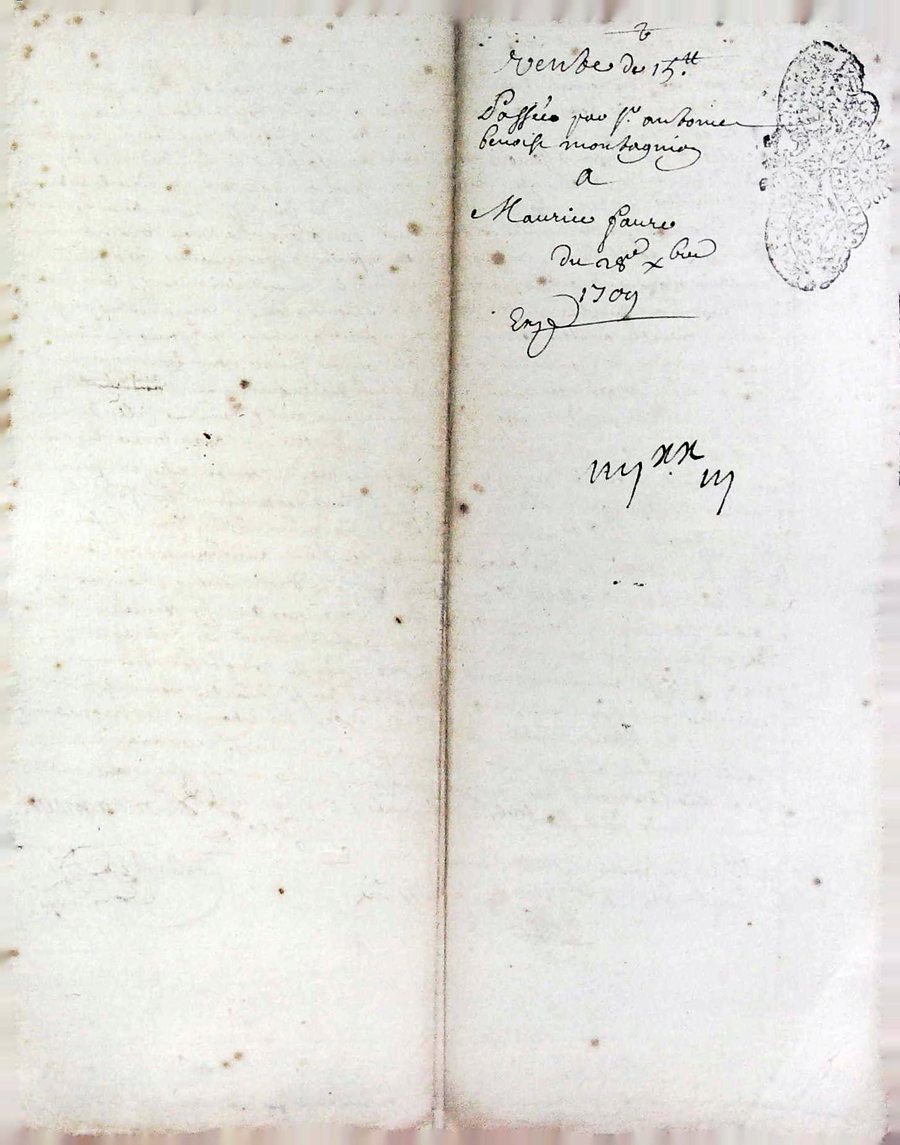 vente de 15.tt
Passée par sr antoine
benoist montagnia
a
Maurice faure
du 28e xbre
1709
iiijxx iij